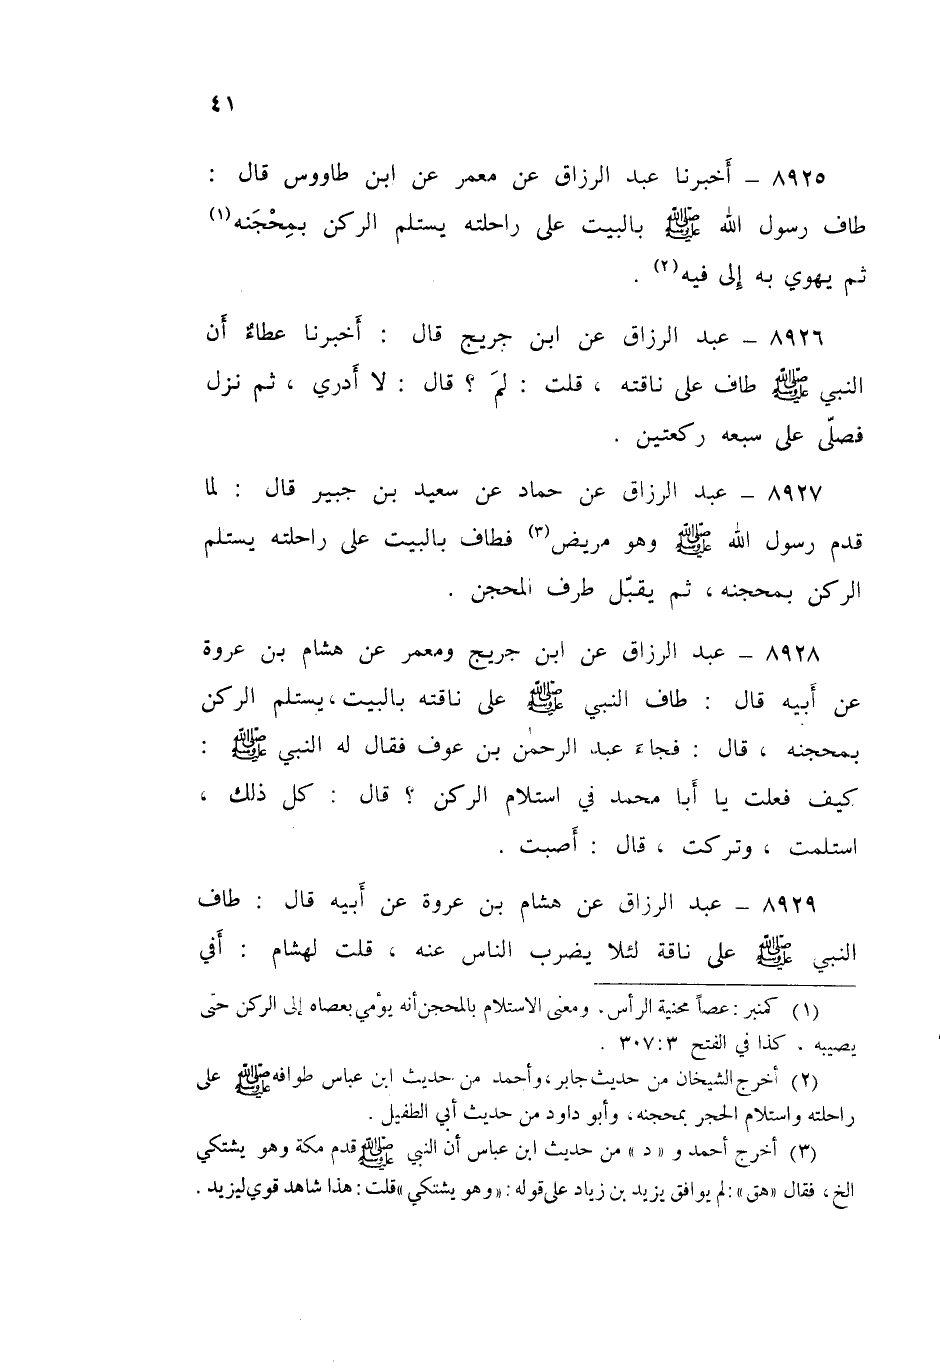 ٤١
٨٩٢٥ – أَخبرنا عبد الرزاق عن معمر عن ابن طاووس قال :
طاف رسول الله ﷺ بالبيت على راحلته يستلم الركن بمِحْجَنه(١)
ثم يهوي به إِلى فيه(٢) .
٨٩٢٦ – عبد الرزاق عن ابن جريج قال : أَخبرنا عطاءٌ أَن
النبي ﷺ طاف على ناقته ، قلت : لمَ ؟ قال : لا أَدري ، ثم نزل
فصلّى على سبعه ركعتين .
٨٩٢٧ – عبد الرزاق عن حماد عن سعيد بن جبير قال : لما
قدم رسول الله ﷺ وهو مريض(٣) فطاف بالبيت على راحلته يستلم
الركن بمحجنه ، ثم يقبّل طرف المحجن .
٨٩٢٨ – عبد الرزاق عن ابن جريج ومعمر عن هشام بن عروة
عن أَبيه قال : طاف النبي ﷺ على ناقته بالبيت ، يستلم الركن
بمحجنه ، قال : فجاءَ عبد الرحمٰن بن عوف فقال له النبي ﷺ :
كيف فعلت يا أَبا محمد في استلام الركن ؟ قال : كل ذلك ،
استلمت ، وتركت ، قال : أَصبت .
٨٩٢٩ – عبد الرزاق عن هشام بن عروة عن أَبيه قال : طاف
النبي ﷺ على ناقة لئلا يضرب الناس عنه ، قلت لهشام : أَفي
(١) كمنبر : عصاً محنية الرأس . ومعنى الاستلام بالمحجن أنه يومي بعصاه إلى الركن حتى
يصيبه . كذا في الفتح ٣٠٧:٣ .
(٢) أخرج الشيخان من حديث جابر ، وأحمد من حديث ابن عباس طوافه ﷺ على
راحلته واستلام الحجر بمحجنه ، وأبو داود من حديث أبي الطفيل .
(٣) أخرج أحمد و « د » من حديث ابن عباس أن النبي ﷺ قدم مكة وهو يشتكي
الخ ، فقال «هق» : لم يوافق يزيد بن زياد على قوله : «وهو يشتكي» قلت : هذا شاهد قوي ليزيد .